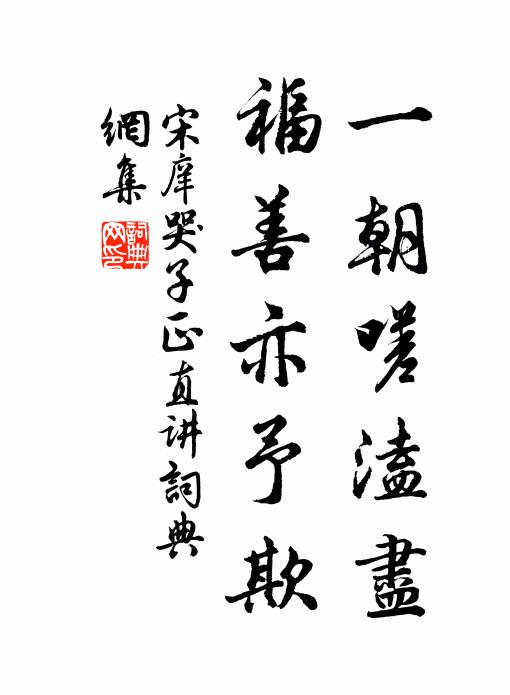 一朝嗟溘盡
福善亦予欺
宋庠哭子正直讲詞典
網集
詞典
网印